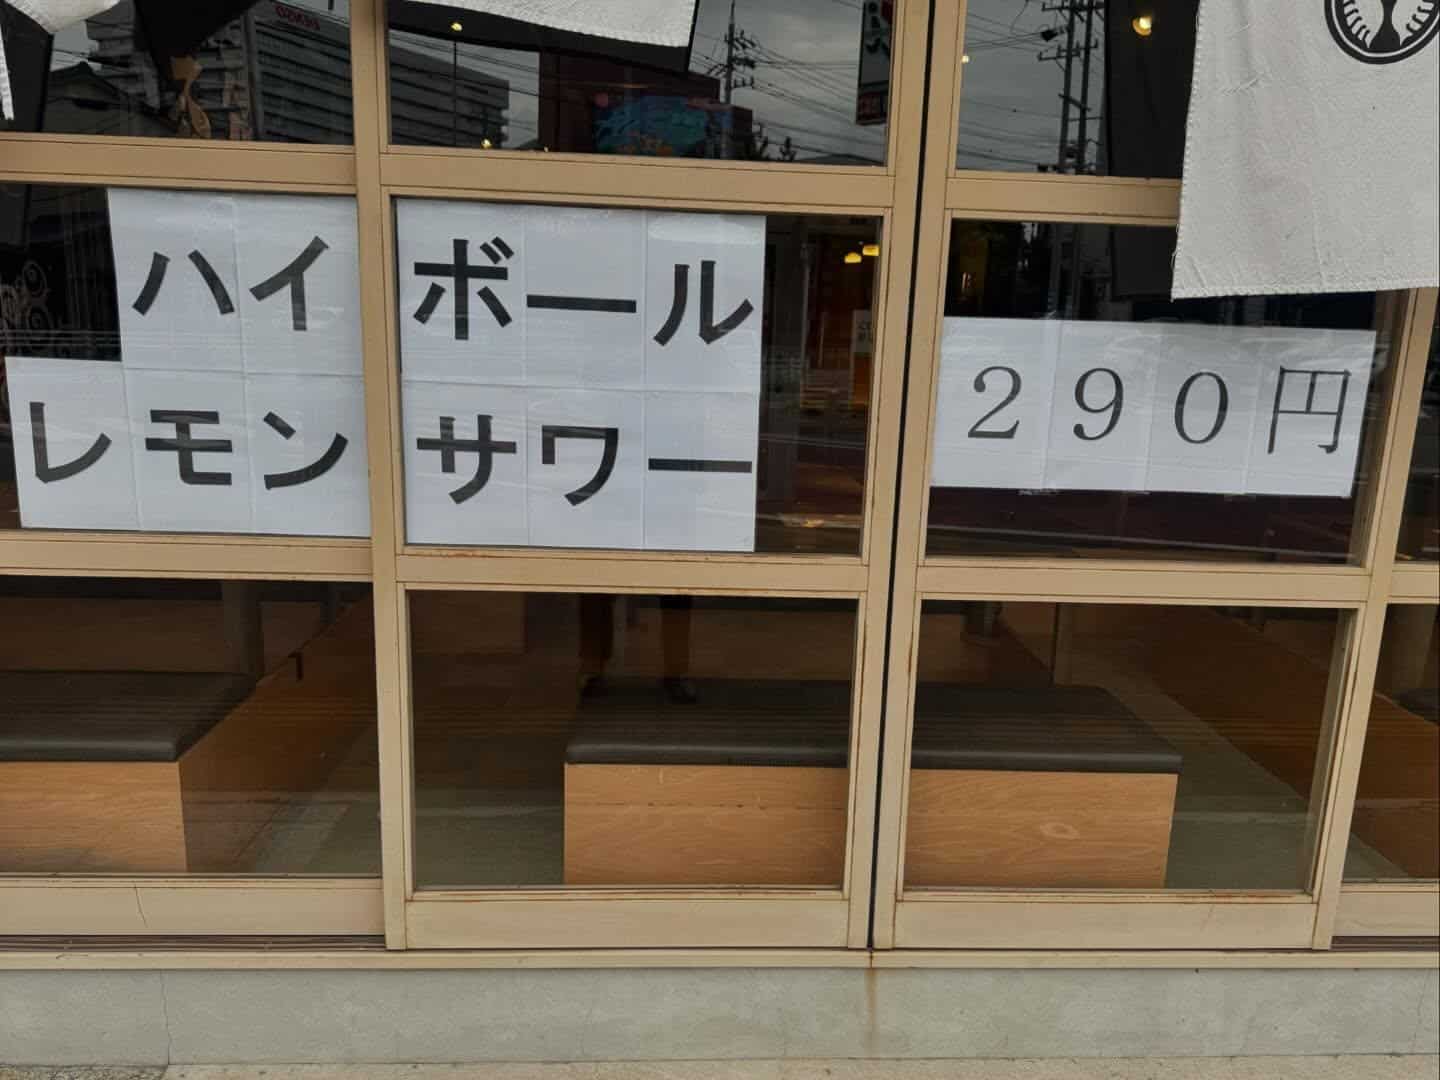 ハイボール
レモンサワー
２９０円